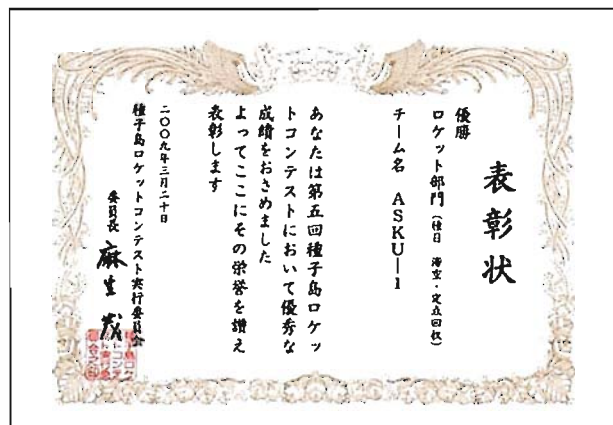 表彰状
優勝
ロケット部門(種目 滞空・定点回収)
チーム名 ASKU-1
あなたは第五回種子島ロケッ
トコンテストにおいて優秀な
成績をおさめました
よってここにその栄誉を讃え
表彰します
二〇〇九年三月二十日
種子島ロケットコンテスト実行委員会
委員長 麻生 茂